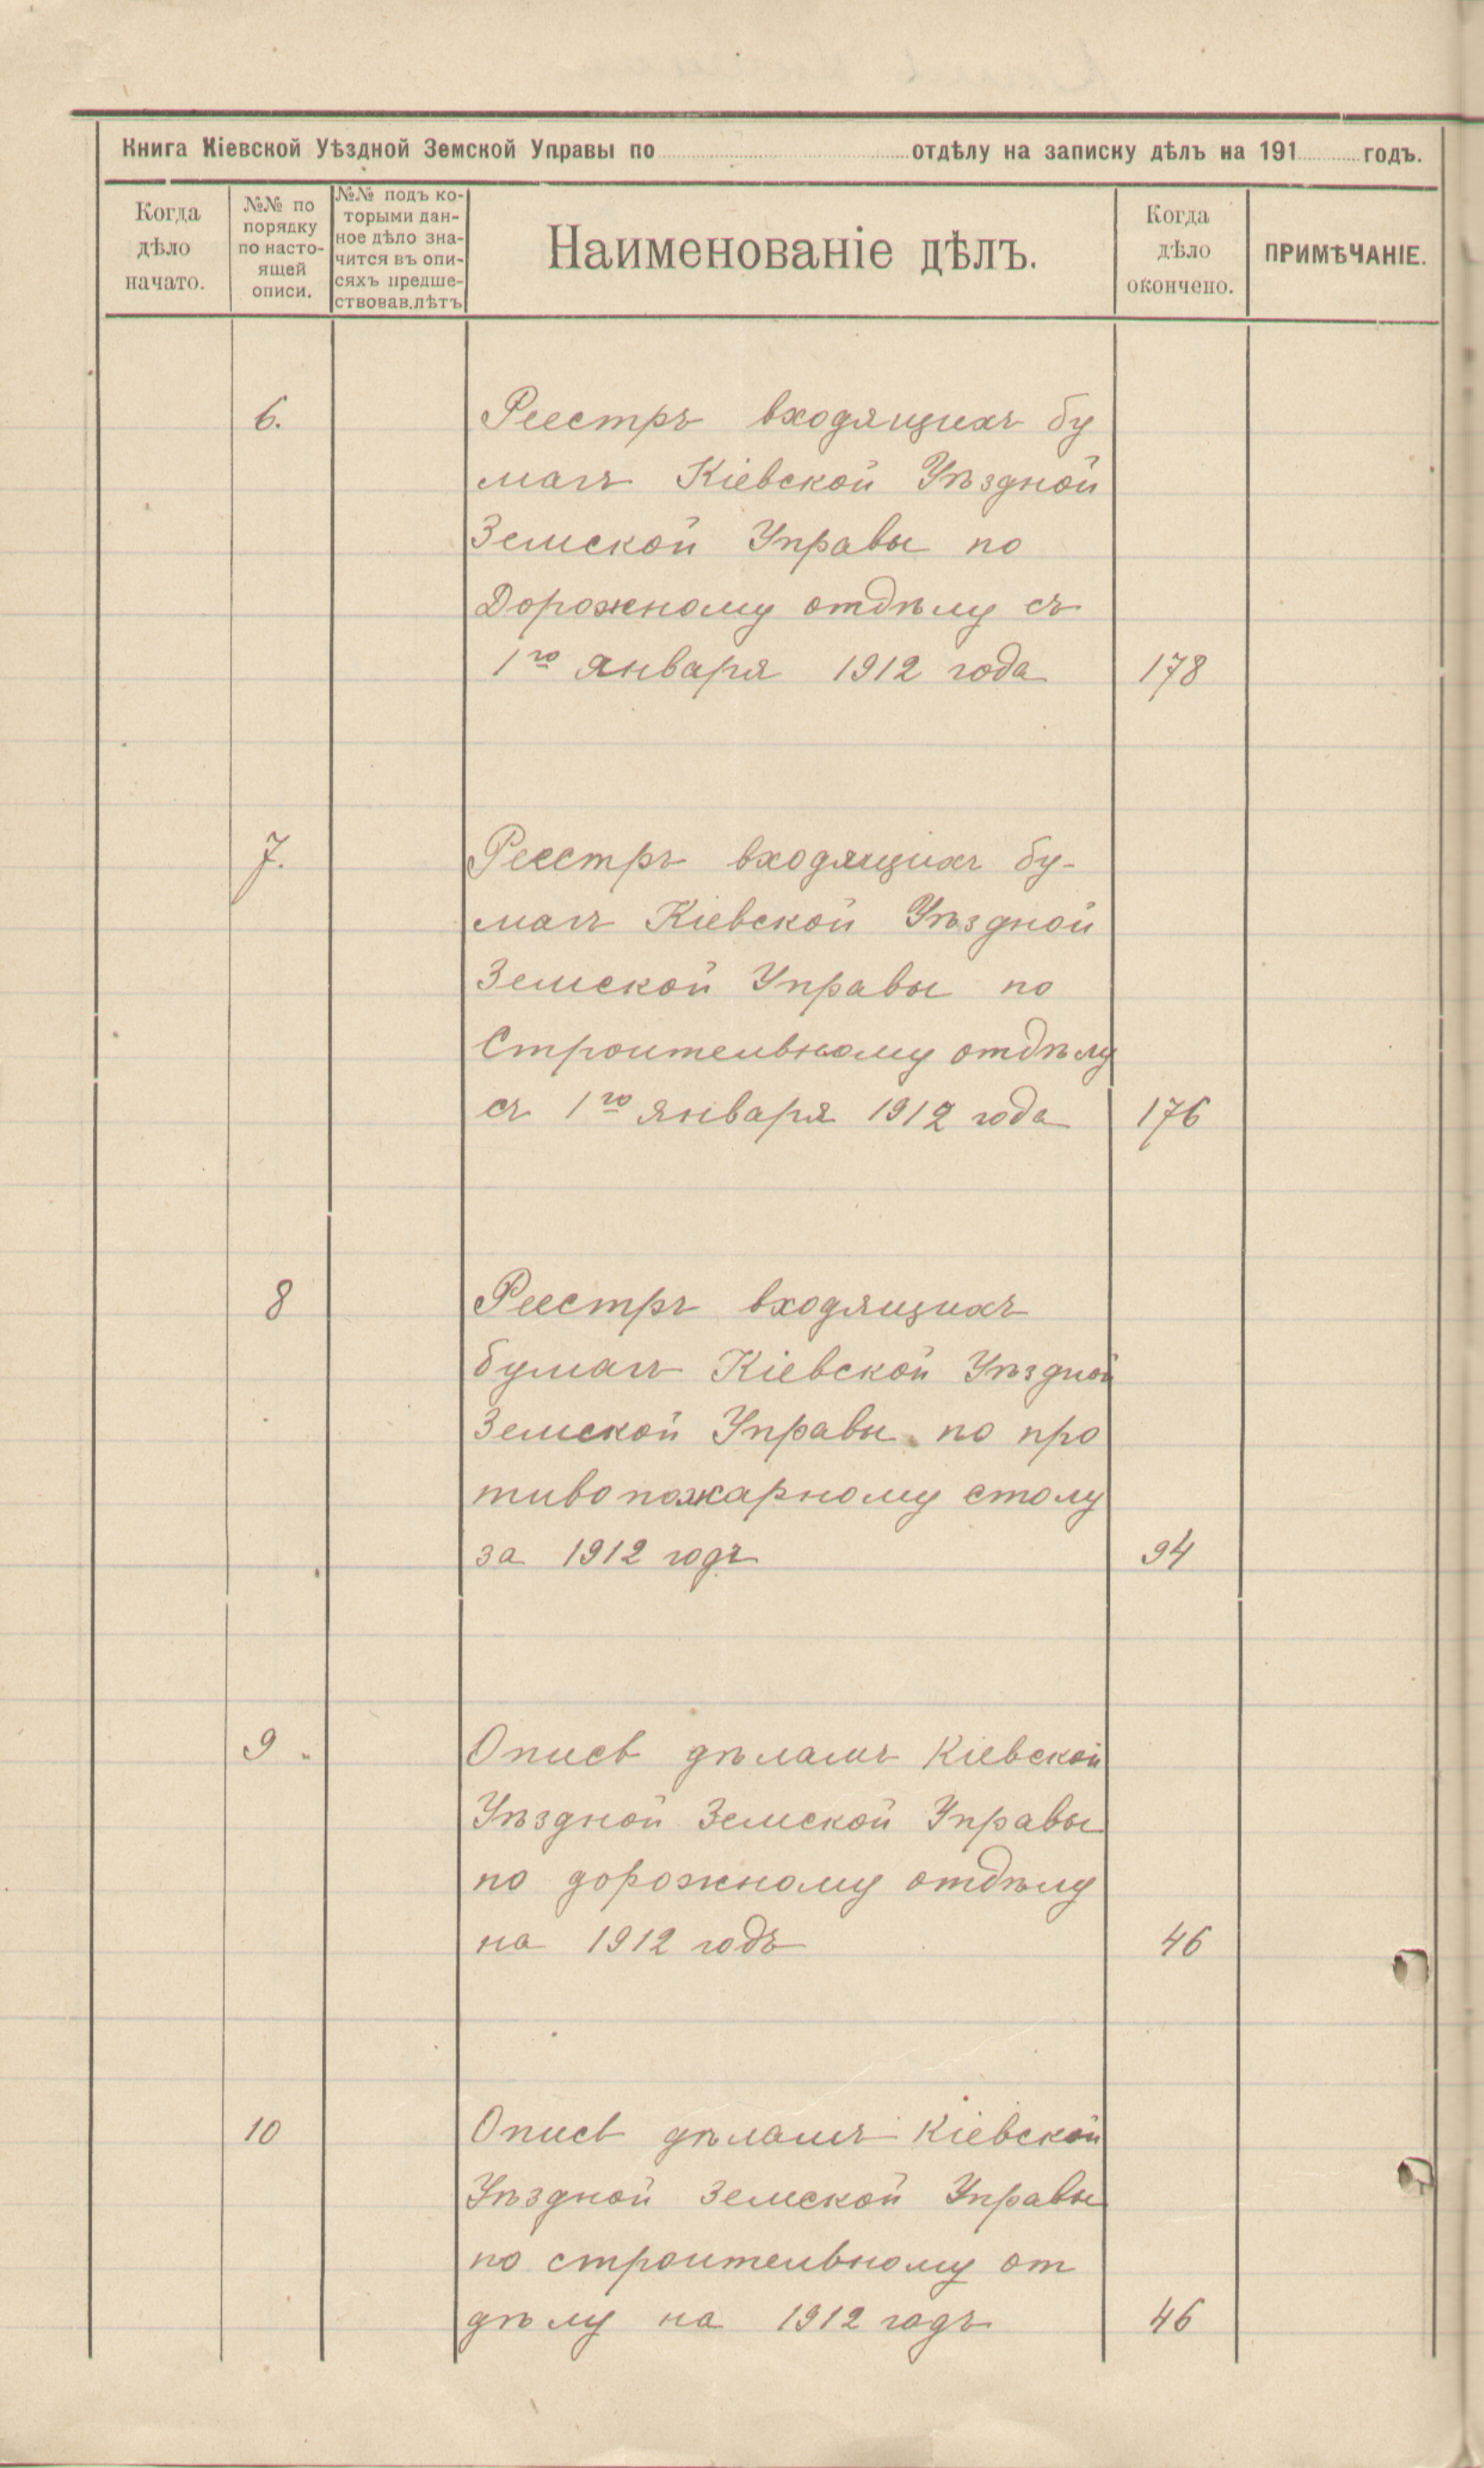 Книга Кіевской Уѣздной Земской Управы по отдѣлу на записку дѣлъ на 191 годъ.
Когда
дѣло
начато.
№№ по
порядку
по насто-
ящей
описи.
№№ подъ ко-
торыми дан-
ное дѣло зна-
чится въ опи-
сяхъ предше-
ствовав.лѣтъ
Наименованіе дѣлъ.
Когда
дѣло
окончено.
ПРИМѢЧАНІЕ.
6. Реестръ входящихъ бу
магъ Кіевской Уѣздной
Земской Управы по
Дорожному отдѣлу съ
1го января 1912 года 178
7. Реестръ входящихъ бу-
магъ Кіевской Уѣздной
Земской Управы по
Строительному отдѣлу
съ 1го января 1912 года 176
8 Реестръ входящихъ
бумагъ Кіевской Уѣздной
Земской Управы по про
тивопожарному столу
за 1912 годъ 94
9. Опись дѣламъ Кіевской
Уѣздной Земской Управы
по дорожному отдѣлу
на 1912 годъ 46
10 Опись дѣламъ Кіевской
Уѣздной Земской Управы
по строительному от
дѣлу на 1912 годъ 46